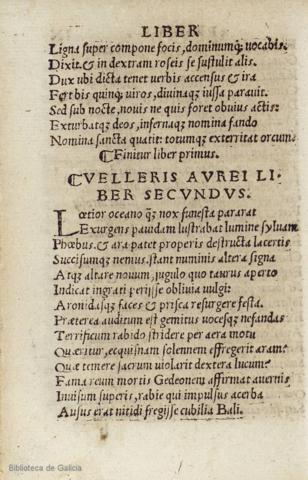 LIBER
Ligna super compone focis, dominumq; vocabis.
Dixit. & in dextram roseis se sustulit alis.
Dux ubi dicta tenet verbis accensus & ira
Fert bis quinq; viros, divinaq; iussa paravit.
Sed sub nocte, novis ne quis foret obvius actis:
Exturbatq; deos, infernaq; nomina fando
Nomina sancta quatit: totumq; exterritat orcum
Finitur liber primus.
VELLERIS AVREI LI-
BER SECVNDVS.
Lætior oceano q̃ nox funesta pararat
Exurgens pavidam lustrabat lumine sylvam
Phœbus. & ara patet properis destructa lacertis
Succisumq; nemus. stant numinis altera signa
Atq; altare novum, jugulo quo taurus aperto
Indicat ingrati perijsse oblivia vulgi:
Aronidasq; faces & prisca resurgere festa.
Præterea auditum est gemitus vocesq; nefandas
Terrificum rabido stridere per aera motu
Quæritur, ecquisnam solennem effregerit aram?
Quæ temere sacrum violarit dextera lucum?
Fama reum mortis Gedeonem affirmat avernis
Invisum superis, rabie qui impulsus acerba
Ausus erat nitidi fregisse cubilia Bali.
Biblioteca de Galicia